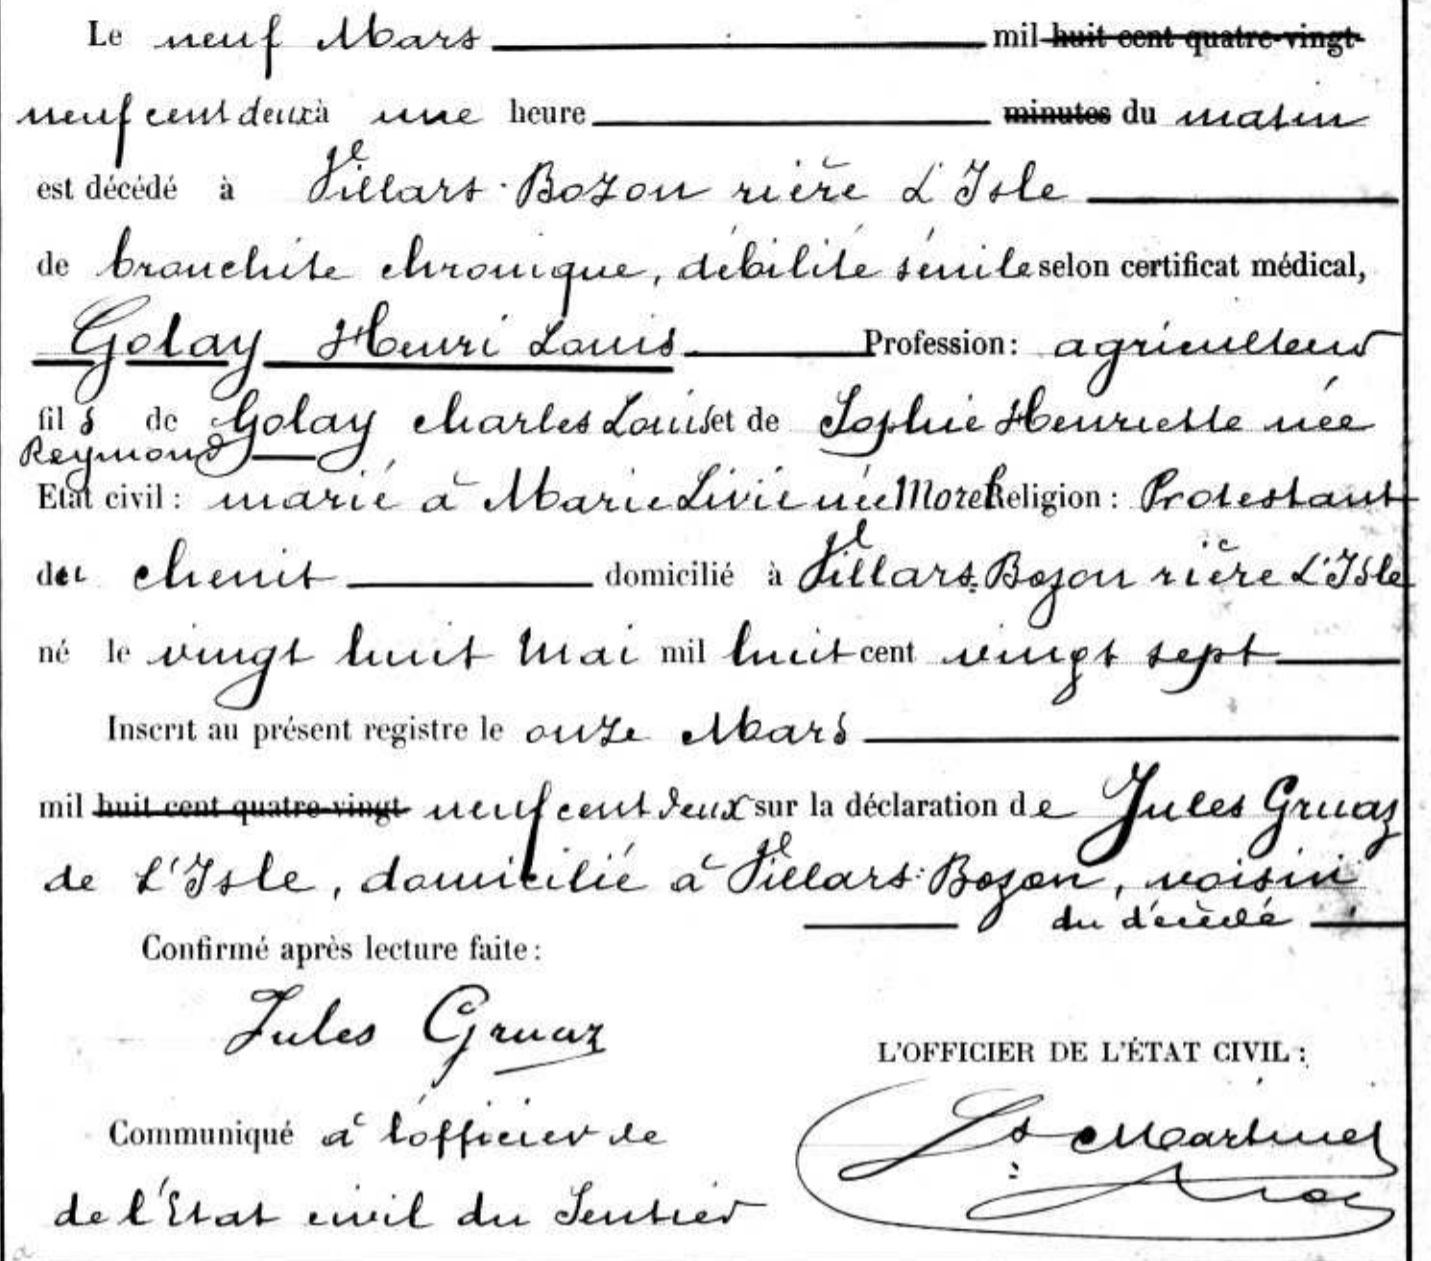 Le neuf Mars mil huit cent quatre-vingt
neuf cent deux à une heure minutes du matin
est décédé à Villars-Bozon rière L'Isle
de bronchite chronique, débilité sénile selon certificat médical,
Golay Henri Louis Profession: agriculteur
fils de Golay Charles Louis et de Sophie Henriette née
Reymond
Etat civil: marié à Marie Livie née Morel Religion: Protestant
du Chenit domicilié à Villars-Bozon rière L'Isle
né le vingt huit Mai mil huit cent vingt sept
Inscrit au présent registre le onze Mars
mil huit cent quatre-vingt neuf cent deux sur la déclaration de Jules Gruaz
de L'Isle, domicilié à Villars-Bozon, voisin
du décédé
Confirmé après lecture faite:
Jules Gruaz
L'OFFICIER DE L'ÉTAT CIVIL:
Communiqué à l'officier de
Ls Martinet
de l'Etat civil du Sentier